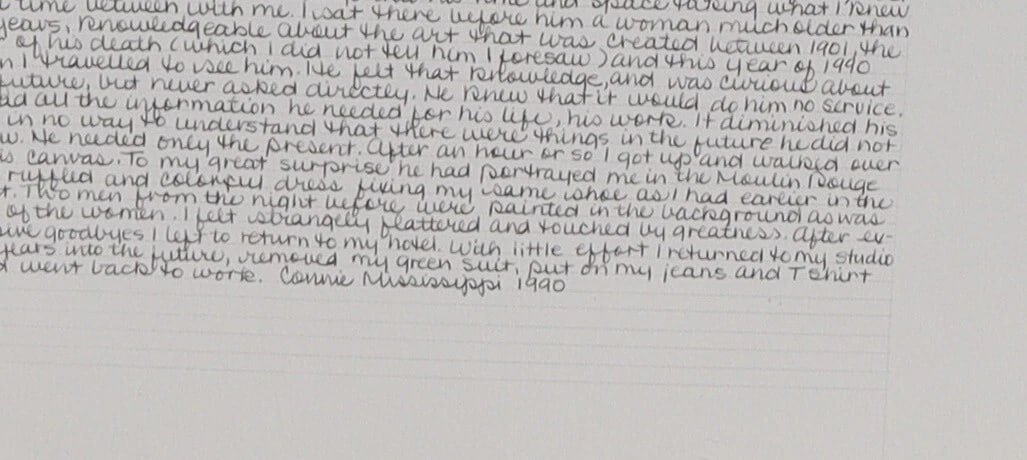 time and space taking what I knew
time between with me. I sat there before him a woman much older than
years, knowledgeable about the art that was created between 1901, the
of his death (which I did not tell him I foresaw) and this year of 1990
n I travelled to see him. He felt that knowledge, and was curious about
future, but never asked directly. He knew that it would do him no service.
ad all the information he needed for his life, his work. It diminished his
in no way to understand that there were things in the future he did not
w. He needed only the present. After an hour or so I got up and walked over
is canvas. To my great surprise he had portrayed me in the Moulin Rouge
ruffled and colorful dress fixing my same shoe as I had earlier in the
t. Two men from the night before were painted in the background as was
of the women. I felt strangely flattered and touched by greatness. After ev-
ive goodbyes I left to return to my hotel. With little effort I returned to my studio
years into the future, removed my green suit, put on my jeans and T shirt
d went back to work. Connie Mississippi 1990